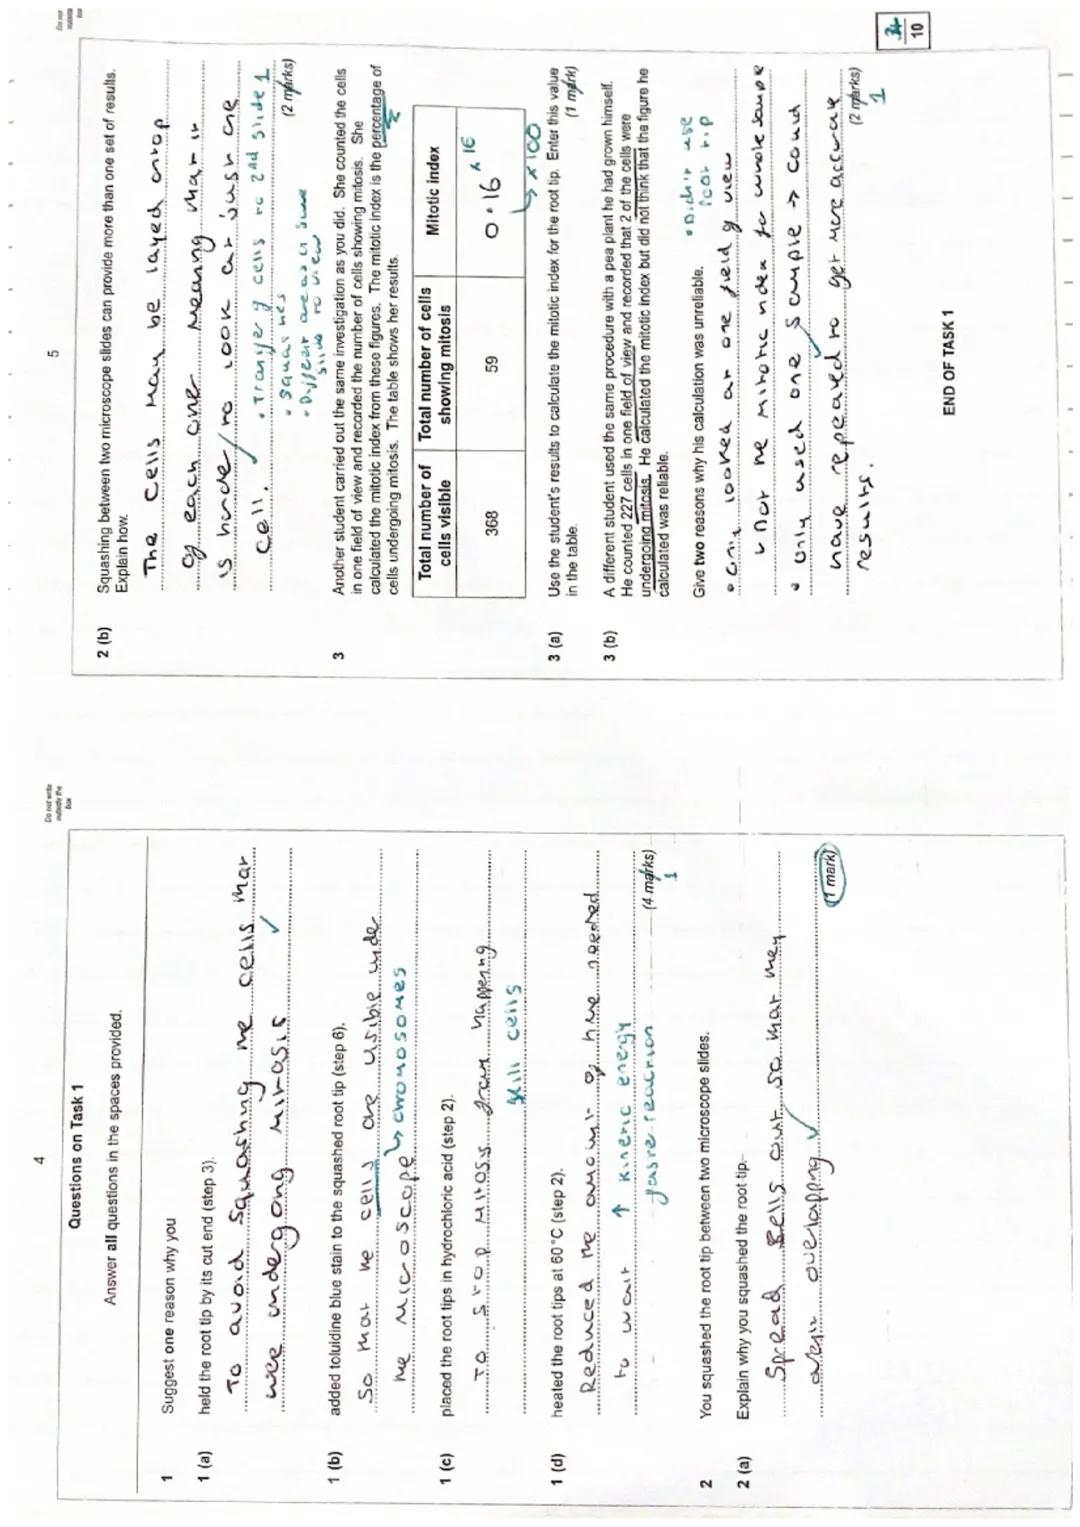 4
Do not write outside the box
Questions on Task 1
Answer all questions in the spaces provided.
1 Suggest one reason why you
1 (a) held the root tip by its cut end (step 3).
To avoid squashing the cells that
were undergoing mitosis ✓
1 (b) added toluidine blue stain to the squashed root tip (step 6).
So that the cells are visible under
the microscope ↳ chromosomes
1 (c) placed the root tips in hydrochloric acid (step 2).
To stop mitosis from happening
kill cells
1 (d) heated the root tips at 60 °C (step 2).
Reduced the amount of time needed
to wait ↑ kinetic energy
faster reaction
(4 marks)
1
2 You squashed the root tip between two microscope slides.
2 (a) Explain why you squashed the root tip.
Spread cells out so that they
aren't overlapping ✓
(1 mark)
5
Do not
2 (b) Squashing between two microscope slides can provide more than one set of results.
Explain how.
The cells may be layed ontop
of each one meaning that it
is harder to look at just one
cell.
• Transfer of cells to 2nd slide 1
(2 marks)
• squashes
• Different areas of same
slide to view
3 Another student carried out the same investigation as you did. She counted the cells
in one field of view and recorded the number of cells showing mitosis. She
calculated the mitotic index from these figures. The mitotic index is the percentage of
cells undergoing mitosis. The table shows her results.
Total number of cells visible Total number of cells showing mitosis Mitotic index
368 59 0.16 x 16
↳ x100
3 (a) Use the student's results to calculate the mitotic index for the root tip. Enter this value
in the table.
(1 mark)
3 (b) A different student used the same procedure with a pea plant he had grown himself.
He counted 227 cells in one field of view and recorded that 2 of the cells were
undergoing mitosis. He calculated the mitotic index but did not think that the figure he
calculated was reliable.
Give two reasons why his calculation was unreliable.
• Didn't use
root tip
• Only looked at one field of view
↳ not the mitotic index for whole sample
• Only used one sample → could
have repeated to get more accurate
results.
(2 marks)
1
10
END OF TASK 1